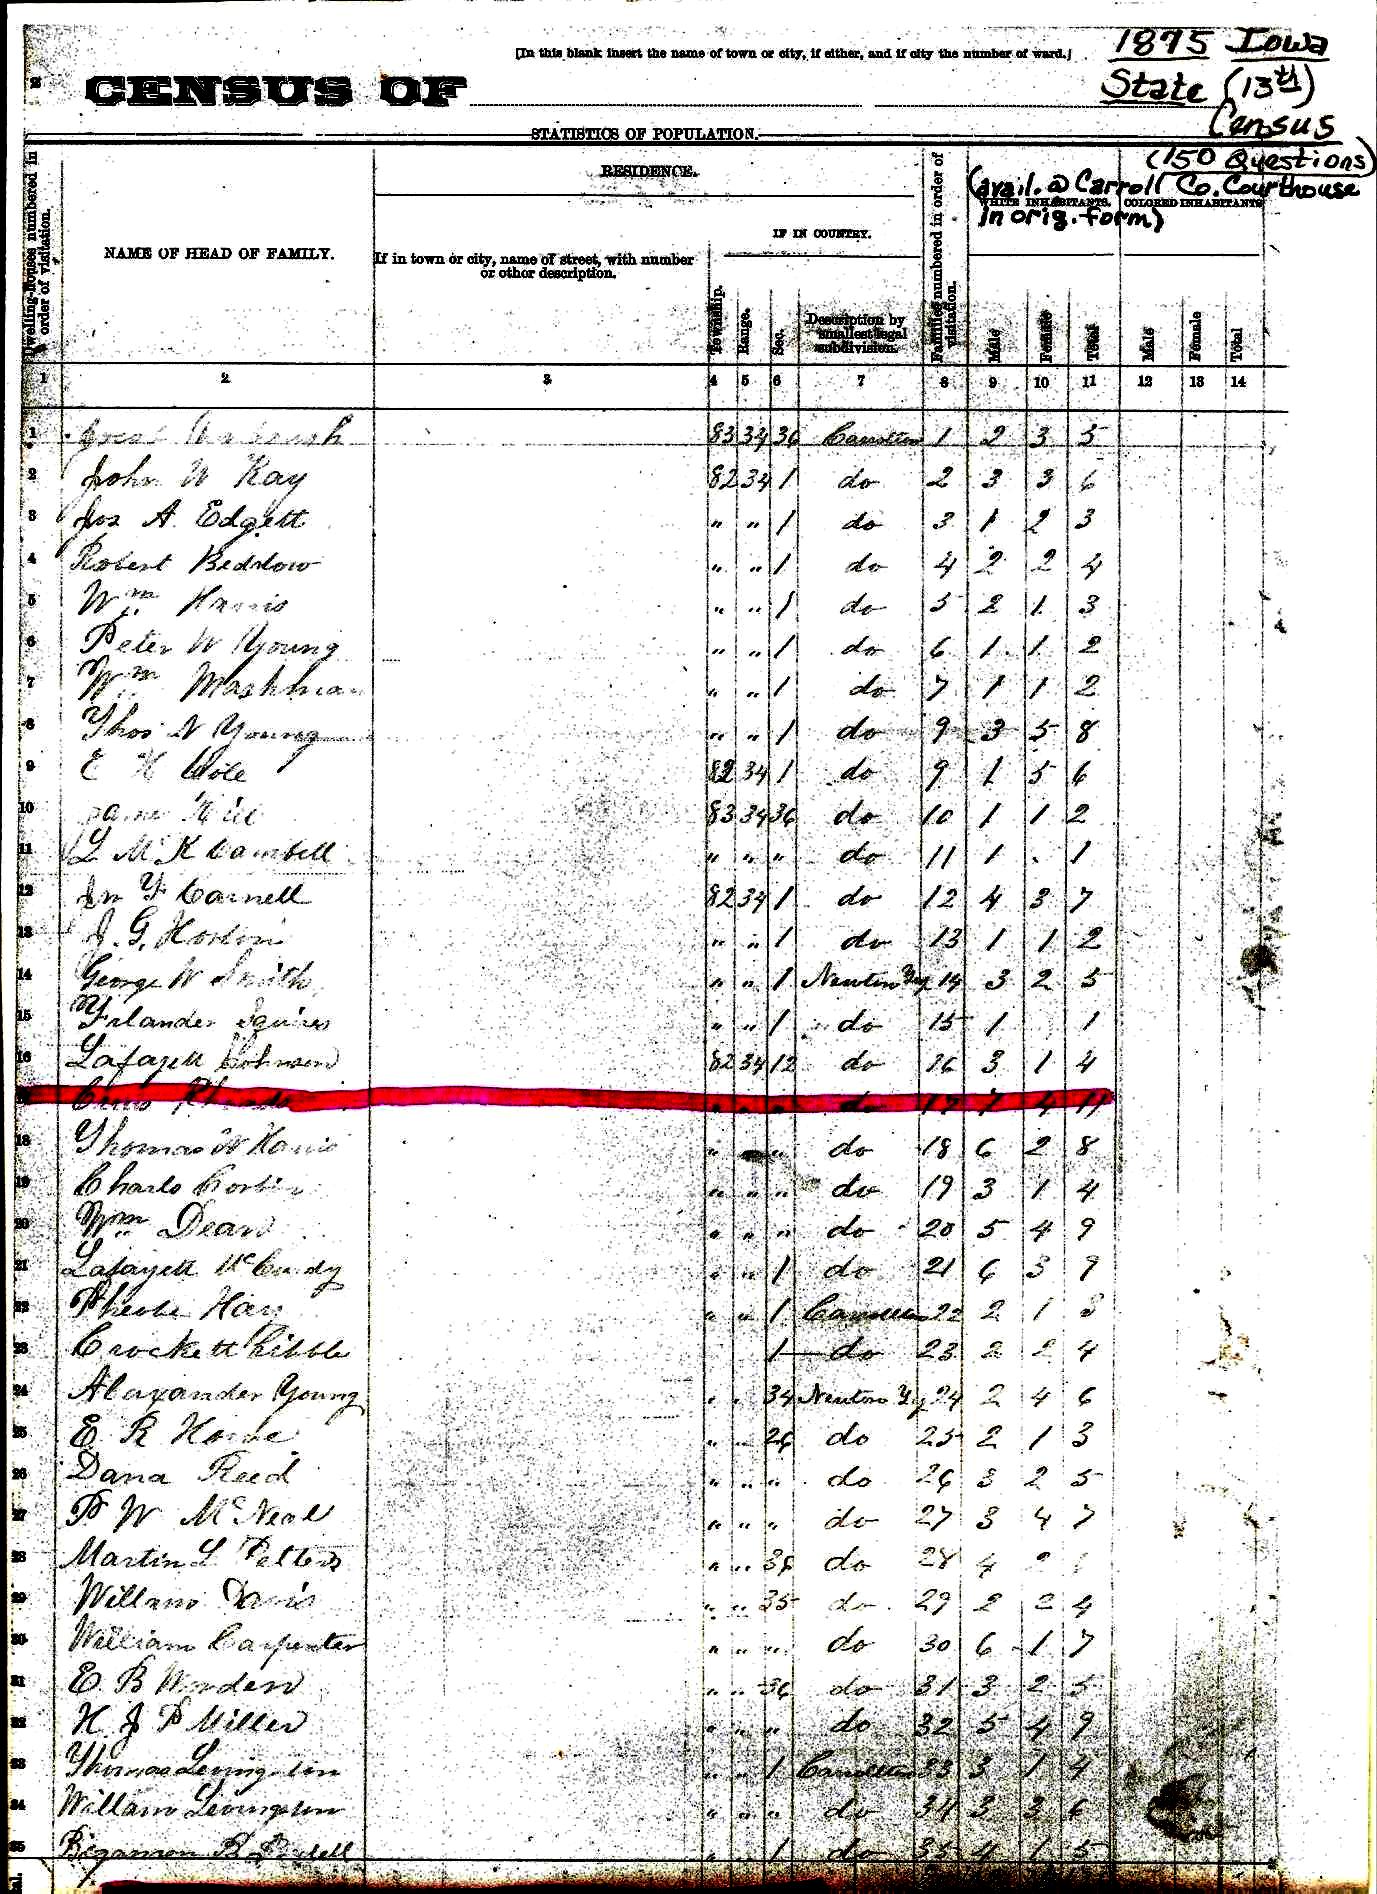 [In this blank insert the name of town or city, if either, and if city the number of ward.]
1875 Iowa
State (13th)
Census
(150 Questions)
(avail. @ Carroll Co. Courthouse
in orig. form)
2
CENSUS OF
STATISTICS OF POPULATION.
Dwelling-houses numbered in order of visitation.
NAME OF HEAD OF FAMILY.
RESIDENCE.
If in town or city, name of street, with number or other description.
IF IN COUNTRY.
Township.
Range.
Sec.
Description by smallest legal subdivision.
Families numbered in order of visitation.
WHITE INHABITANTS.
COLORED INHABITANTS
Male
Female
Total
Male
Female
Total
1 2 3 4 5 6 7 8 9 10 11 12 13 14
1 83 34 36 Carrollton 1 2 3 5
2 John W Kay 82 34 1 do 2 3 3 6
3 Jos A Edgett " " 1 do 3 1 2 3
4 Robert Beddow " " 1 do 4 2 2 4
5 Wm Harris " " 1 do 5 2 1 3
6 Peter W Young " " 1 do 6 1 1 2
7 Wm Mashman " " 1 do 7 1 1 2
8 Thos N Young " " 1 do 9 3 5 8
9 E H Cole 82 34 1 do 9 1 5 6
10 83 34 36 do 10 1 1 2
11 L M K Cambell " " " do 11 1 . 1
12 Jn Y Carnell 82 34 1 do 12 4 3 7
13 J. G. " " 1 do 13 1 1 2
14 George W Smith " " 1 Newton Tp 14 3 2 5
15 Squires " " 1 do 15 1 1
16 Lafayett Johnson 82 34 12 do 16 3 1 4
17 " " " do 17 7 4 11
18 Thomas W Harris " " " do 18 6 2 8
19 Charls " " " do 19 3 1 4
20 Wm Dean " " " do 20 5 4 9
21 Lafayett McCurdy " " 1 do 21 6 3 9
22 Pheobe Hay " " 1 Carrollton 22 2 1 3
23 Crockett Ribble 1 do 23 2 2 4
24 Alexander Young " " 34 Newton Tp 24 2 4 6
25 E. R " " 26 do 25 2 1 3
26 Dana Reed " " " do 26 3 2 5
27 P W McNeal " " " do 27 3 4 7
28 Martin L Petters " " 36 do 28 4 2
29 Willam Davis " " 35 do 29 2 2 4
30 William Carpenter " " " do 30 6 1 7
31 E. B Worden " " 36 do 31 3 2 5
32 H J P Miller " " " do 32 5 4 9
33 Thomas Levingston " " 1 Carrollton 33 3 1 4
34 Willam Livingston " " " do 34 3 3 6
35 " " 1 do 35 4 1 5